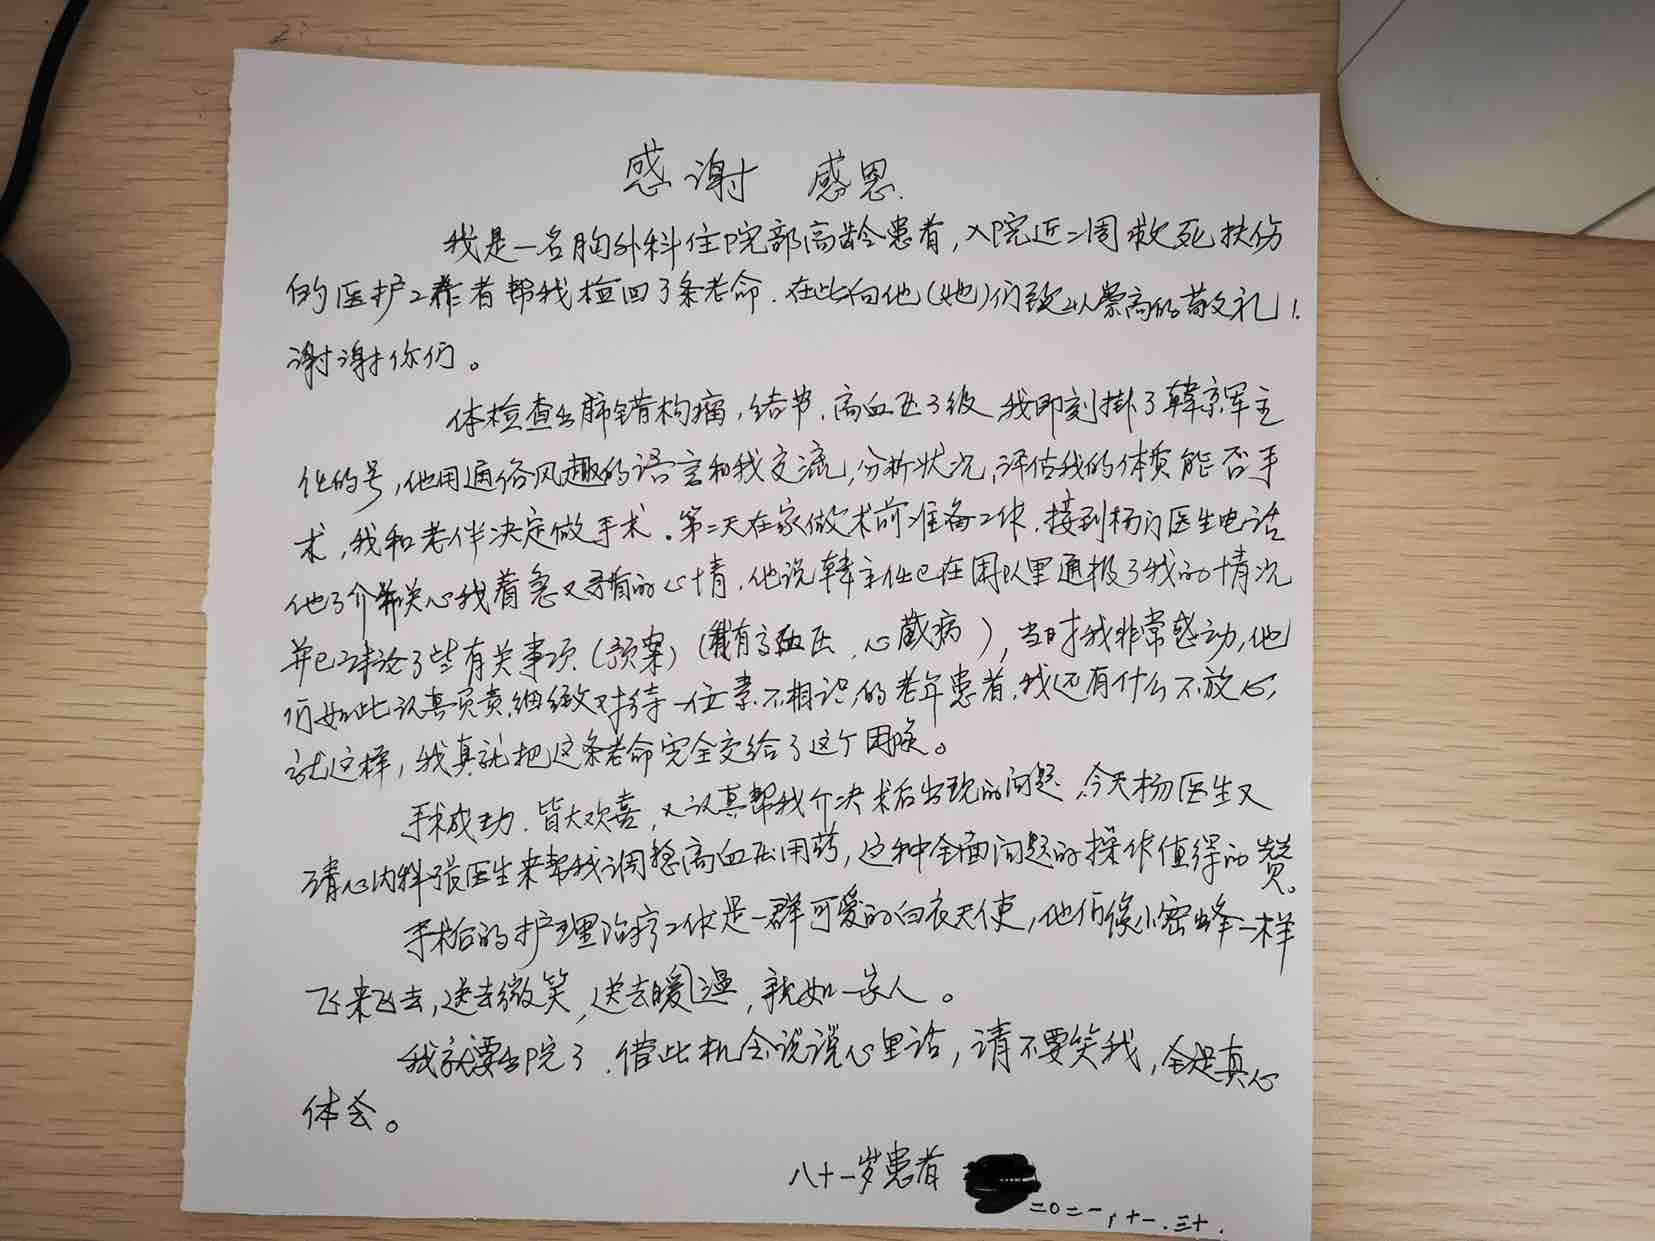 感谢 感恩.
我是一名胸外科住院部高龄患者,入院近二周救死扶伤
的医护工作者帮我检回了条老命.在此向他(她)们致以崇高的敬礼!
谢谢你们。
体检查出肺错构瘤,结节,高血压3级,我即刻掛了韓京军主
任的号,他用通俗风趣的语言和我交流,分析状况,评估我的体质能否手
术,我和老伴决定做手术。第二天在家做术前准备工作,接到杨医生电话
他了介我着急又矛盾的心情,他说韓主任已在团队里通报了我的情况
并已讨论了些有关事项(预案)(我有高血压,心臓病),当时我非常感动,他
们如此认真负责细緻对待一位素不相识的老年患者,我还有什么不放心,
就这样,我真就把这条老命完全交给了这个团队。
手术成功,皆大欢喜,又认真帮我介决术后出现的问题,今天杨医生又
请心内科张医生来帮我调整高血压用药,这种全面问题的操作值得的赞。
手术后的护理治疗工作是一群可爱的白衣天使,他们像小密蜂一样
飞来飞去,送去微笑,送去暖温,就如一家人。
我就要出院了,借此机会说说心里话,请不要笑我,全是真心
体会。
八十一岁患者
二〇二一,十一.三十.